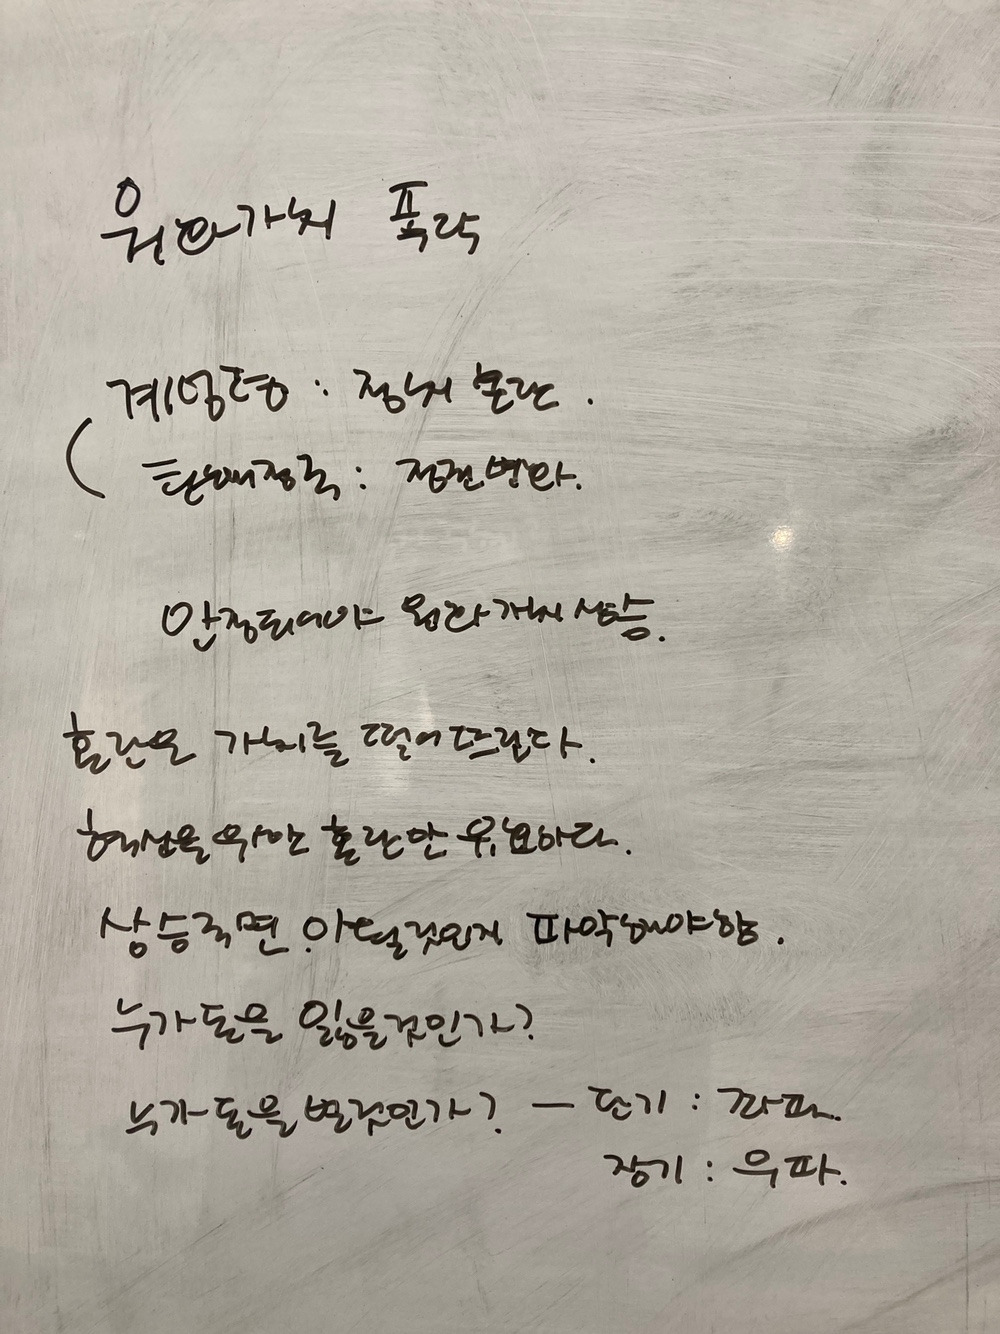 원화가치 폭락
계엄령 : 정치 혼란.
탄핵정국 : 정권변화.
안정되어야 원화가치 상승.
혼란은 가치를 떨어뜨린다.
협상을 위한 혼란만 유효하다.
상승국면 어덜것인지 파악해야함.
누가 돈을 잃을것인가?
누가 돈을 벌것인가? — 단기 : 좌파.
장기 : 우파.